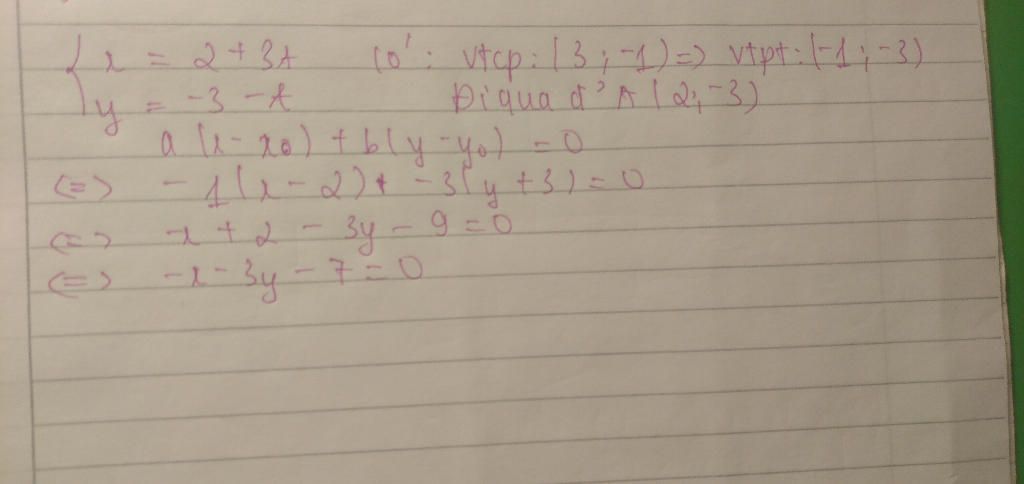 { x = 2 + 3t có: vtcp: (3; -1) => vtpt: (-1; -3)
y = -3 - t Đi qua đ' A (2; -3)
a (x - x₀) + b(y - y₀) = 0
<=> - 1(x - 2) + -3(y + 3) = 0
<=> -x + 2 - 3y - 9 = 0
<=> -x - 3y - 7 = 0